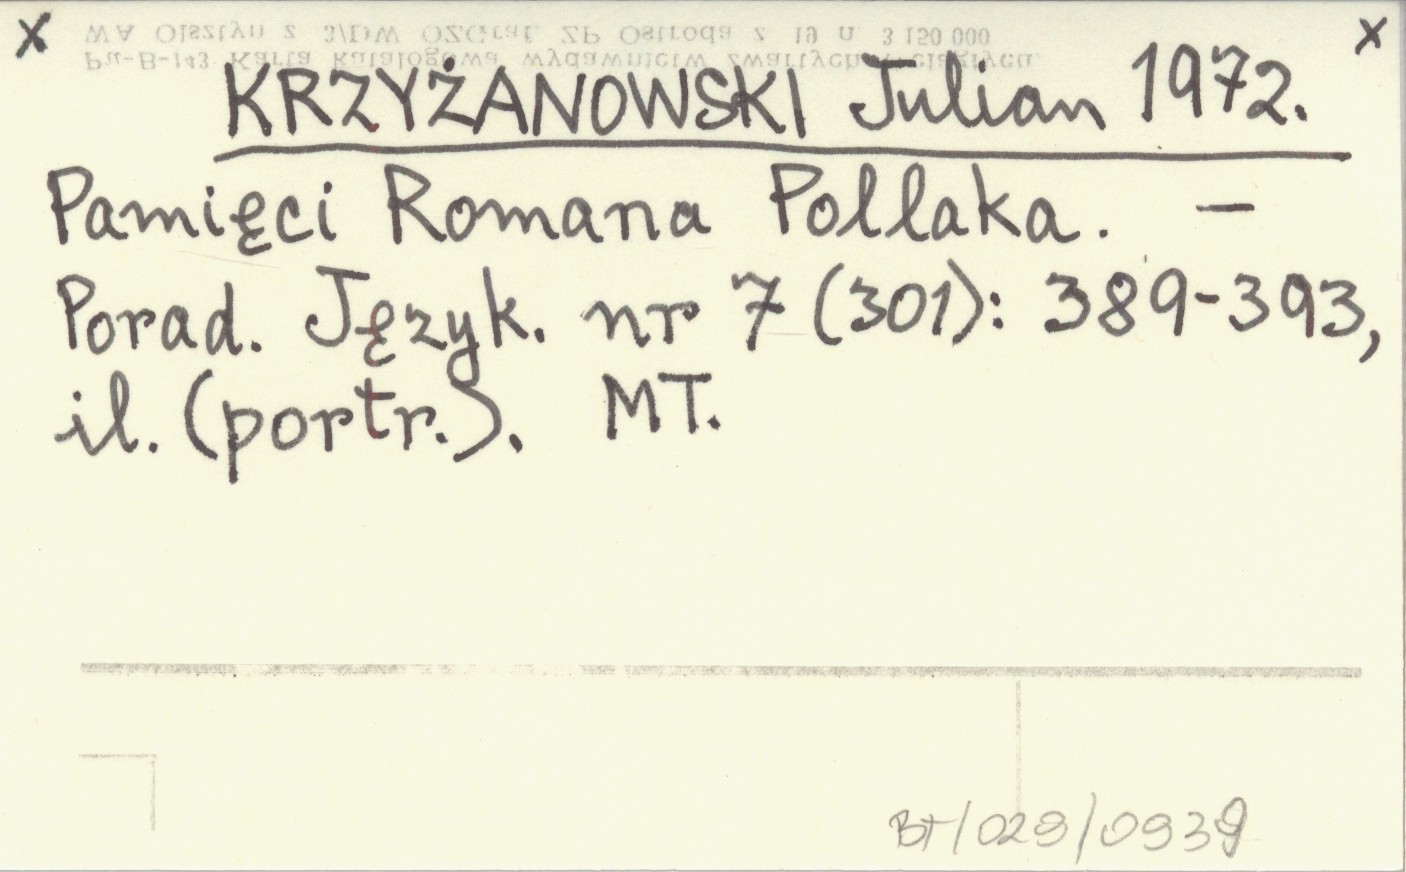 x x
KRZYŻANOWSKI Julian 1972.
Pamięci Romana Pollaka. –
Porad. Język. nr 7 (301): 389-393,
il. (portr.). MT.
BT/029/0939